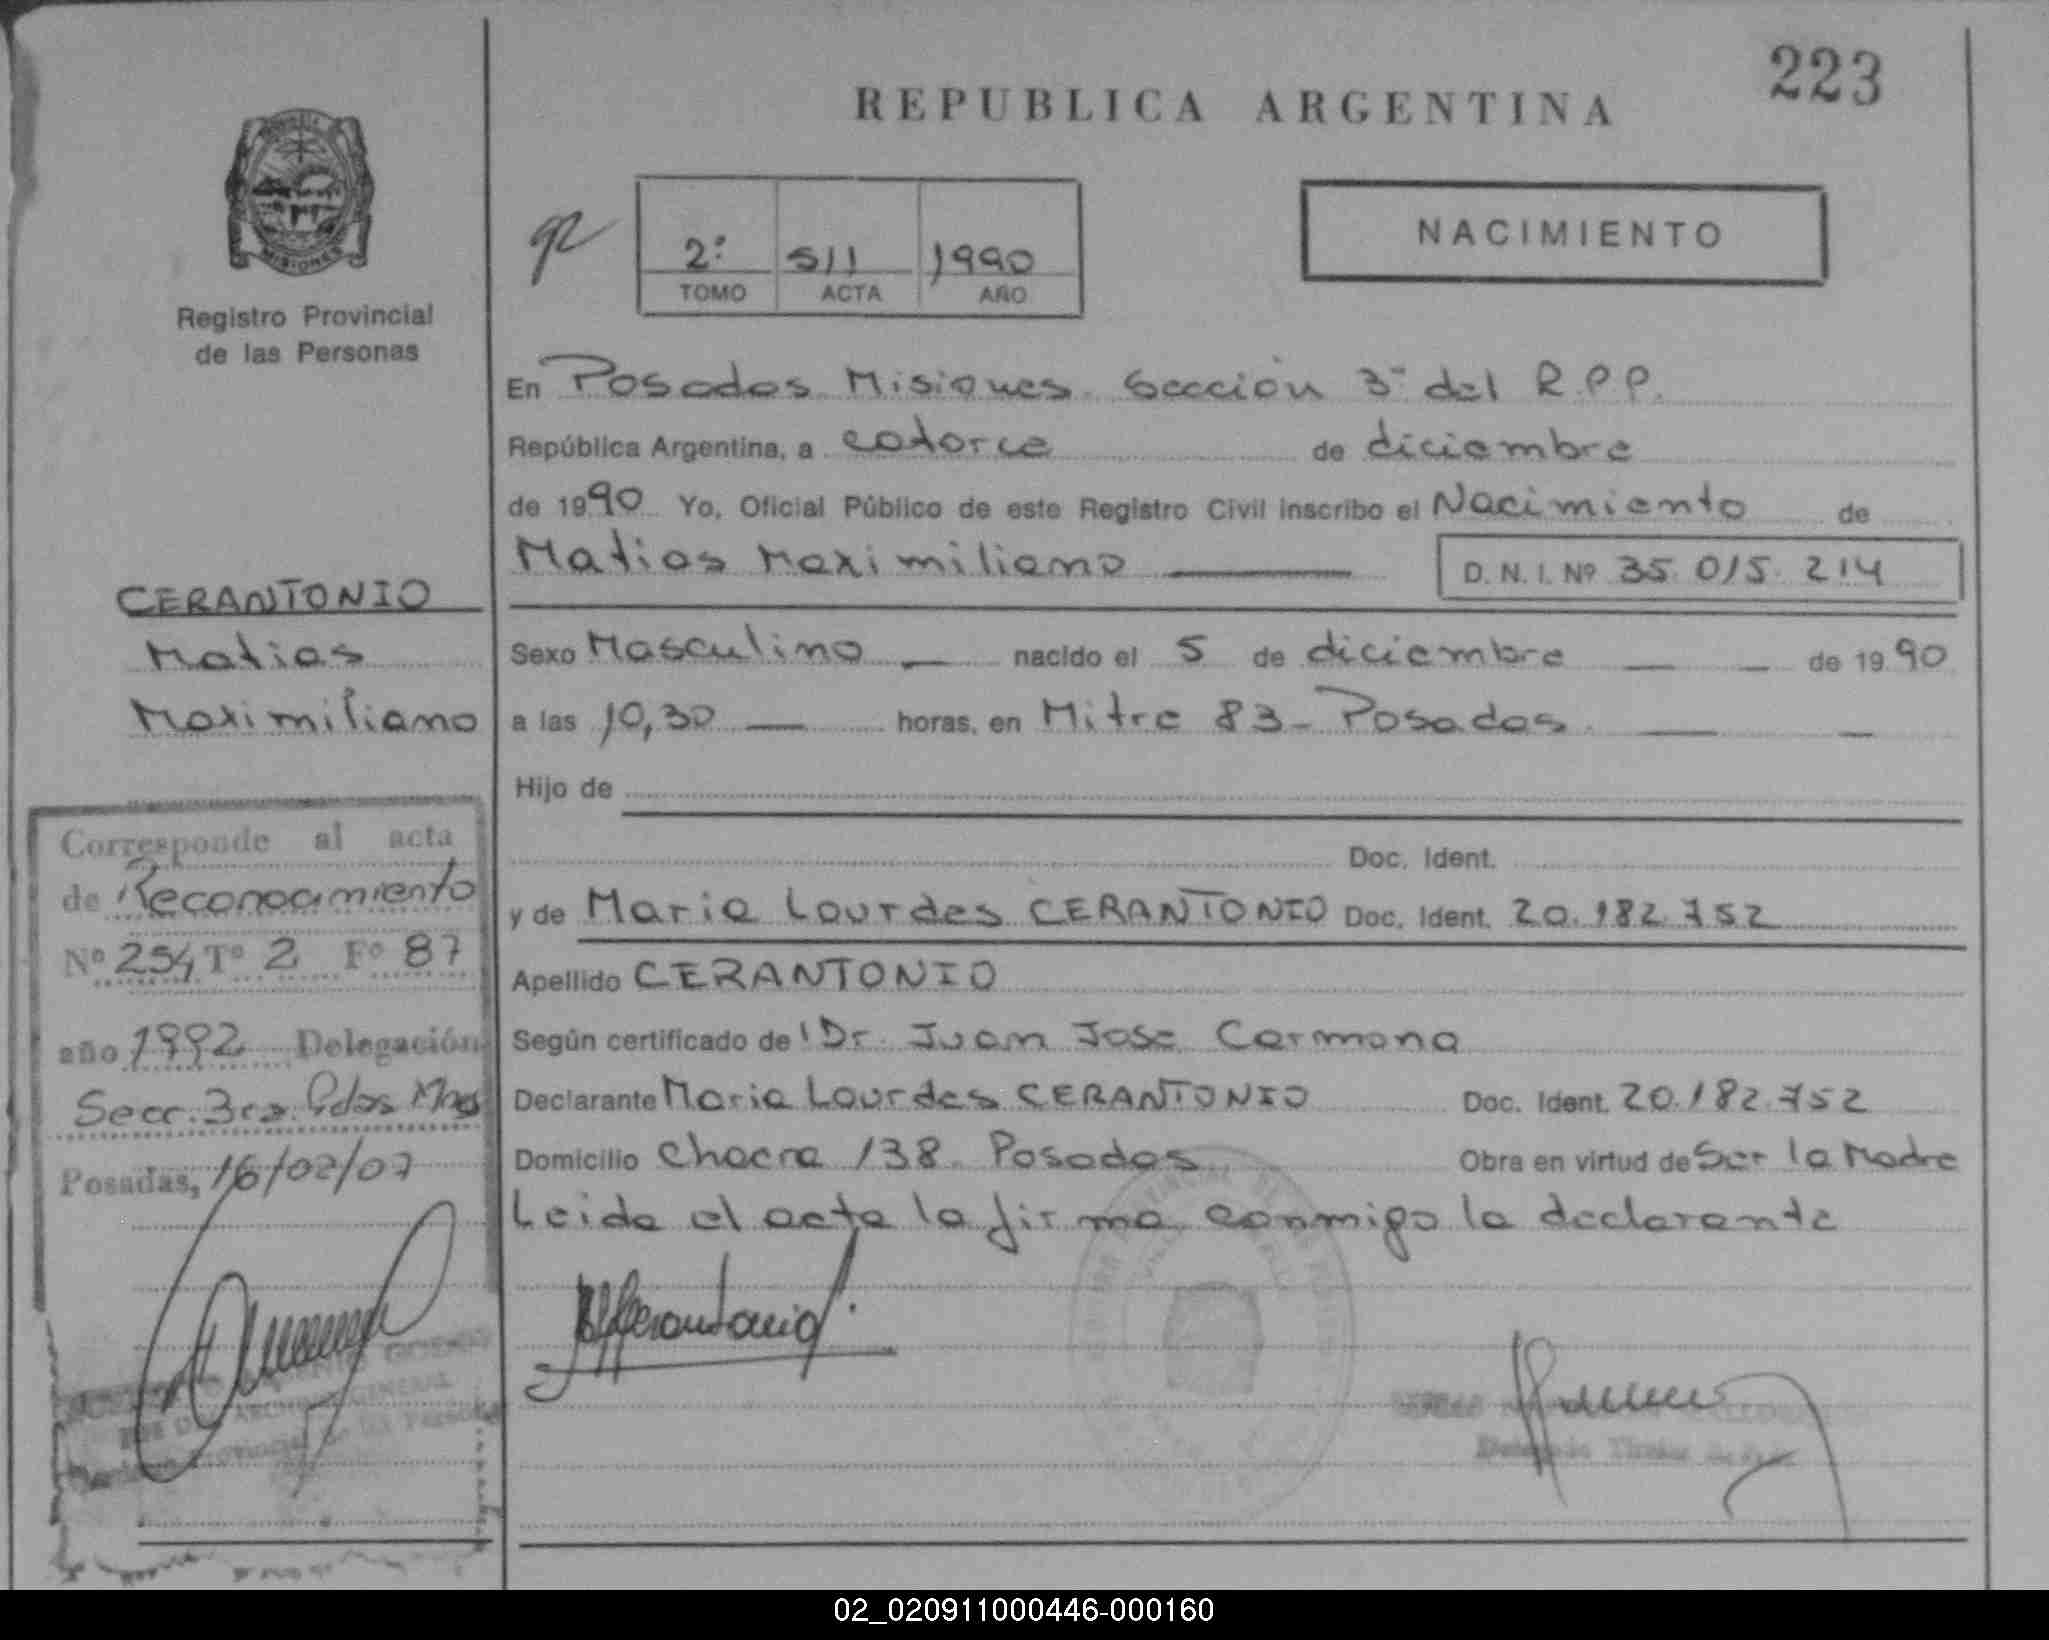 223
REPUBLICA ARGENTINA
MISIONES
Registro Provincial
de las Personas
2º 511 1990
TOMO ACTA AÑO
NACIMIENTO
En Posadas Misiones Sección 3ª del R.P.P.
República Argentina, a catorce de diciembre
de 1990 Yo, Oficial Público de este Registro Civil inscribo el Nacimiento de
Matias Maximiliano D. N. I. Nº 35.015.214
CERANTONIO
Matias
Maximiliano
Sexo Masculino nacido el 5 de diciembre de 1990
a las 10,30 horas, en Mitre 83 - Posadas
Hijo de
Doc. Ident.
y de Maria Lourdes CERANTONIO Doc. Ident. 20.182.752
Apellido CERANTONIO
Según certificado de Dr. Juan Jose Carmona
Declarante Maria Lourdes CERANTONIO Doc. Ident. 20.182.752
Domicilio Chacra 138 Posadas Obra en virtud de Ser la Madre
Leida el acta la firma conmigo la declarante
Corresponde al acta
de Reconocimiento
Nº 254 Tº 2 Fº 87
año 1992 Delegación
Secc. 3ra. Pdas Mnes
Posadas, 16/02/07
02_020911000446-000160